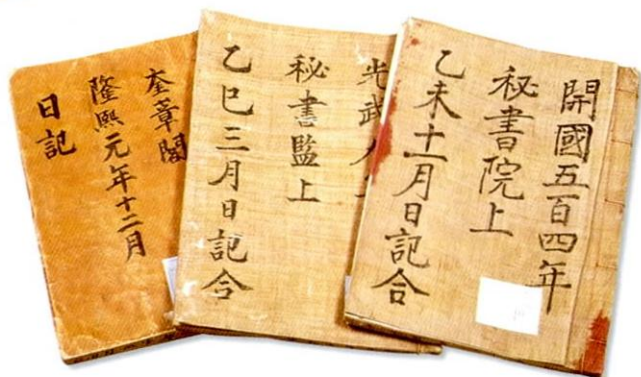 開國五百四年
秘書院上
乙未十一月日記合
光武
秘書監上
乙巳三月日記合
奎章閣
隆熙元年十二月
日記